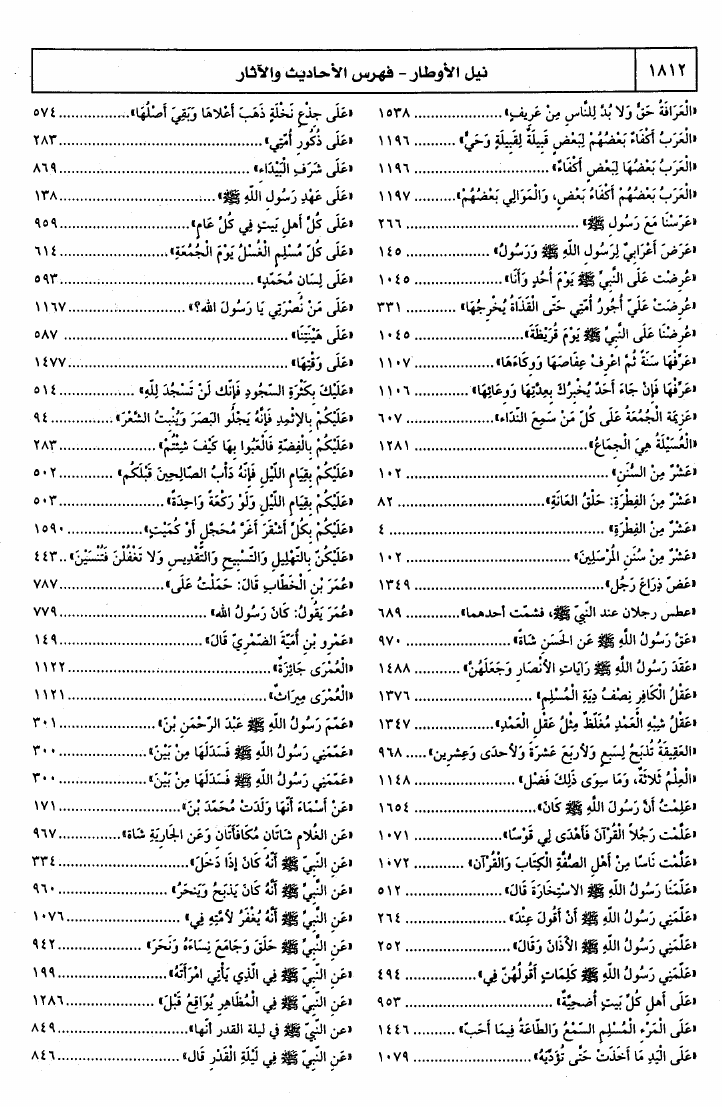 ١٨١٢
نيل الأوطار - فهرس الأحاديث والآثار
«الْعَرَافَةُ حَقٌّ وَلَا بُدَّ لِلنَّاسِ مِنْ عَرِيفٍ» ........ ١٥٣٨
«الْعَرَبُ أَكْفَاءٌ بَعْضُهُمْ لِبَعْضٍ قَبِيلَةٌ لِقَبِيلَةٍ وَحَيٌّ» ........ ١١٩٦
«الْعَرَبُ بَعْضُهَا لِبَعْضٍ أَكْفَاءٌ» ........ ١١٩٦
«الْعَرَبُ بَعْضُهُمْ أَكْفَاءُ بَعْضٍ، وَالْمَوَالِي بَعْضُهُمْ» ........ ١١٩٧
«عَرَّسْنَا مَعَ رَسُولِ ﷺ» ........ ٢٦٦
«عَرَضَ أَعْرَابِيٌّ لِرَسُولِ اللَّهِ ﷺ وَرَسُولُ» ........ ١٤٥
«عُرِضْتُ عَلَى النَّبِيِّ ﷺ يَوْمَ أُحُدٍ وَأَنَا» ........ ١٠٤٥
«عُرِضَتْ عَلَيَّ أُجُورُ أُمَّتِي حَتَّى الْقَذَاةُ يُخْرِجُهَا» ........ ٣٣١
«عُرِضْنَا عَلَى النَّبِيِّ ﷺ يَوْمَ قُرَيْظَةَ» ........ ١٠٤٥
«عَرِّفْهَا سَنَةً ثُمَّ اعْرِفْ عِفَاصَهَا وَوِكَاءَهَا» ........ ١١٠٧
«عَرِّفْهَا فَإِنْ جَاءَ أَحَدٌ يُخْبِرُكَ بِعِدَّتِهَا وَوِعَائِهَا» ........ ١١٠٦
«عَزِيمَةُ الْجُمُعَةُ عَلَى كُلِّ مَنْ سَمِعَ النِّدَاءَ» ........ ٦٠٧
«الْعُسَيْلَةُ هِيَ الْجِمَاعُ» ........ ١٢٨١
«عَشْرٌ مِنْ السُّنَنِ» ........ ١٠٢
«عَشْرٌ مِنَ الْفِطْرَةِ: حَلْقُ الْعَانَةِ» ........ ٨٢
«عَشْرٌ مِنْ الْفِطْرَةِ» ........ ٤
«عَشْرٌ مِنْ سُنَنِ الْمُرْسَلِينَ» ........ ١٠٢
«عَضَّ ذِرَاعَ رَجُلٍ» ........ ١٣٤٩
«عطس رجلان عند النَّبِيِّ ﷺ، فشمّت أحدهما» ........ ٦٨٩
«عَقَّ رَسُولُ اللَّهِ ﷺ عَنِ الحَسَنِ شَاةً» ........ ٩٧٠
«عَقَدَ رَسُولُ اللَّهِ ﷺ رَايَاتِ الْأَنْصَارِ وَجَعَلَهُنَّ» ........ ١٤٨٨
«عَقْلُ الْكَافِرِ نِصْفُ دِيَةِ الْمُسْلِمِ» ........ ١٣٧٦
«عَقْلُ شِبْهِ الْعَمْدِ مُغَلَّظٌ مِثْلُ عَقْلِ الْعَمْدِ» ........ ١٣٤٧
«الْعَقِيقَةُ تُذْبَحُ لِسَبْعٍ وَلِأَرْبَعَ عَشْرَةَ وَلِأَحْدَى وَعِشْرِين» ..... ٩٦٨
«الْعِلْمُ ثَلَاثَةٌ، وَمَا سِوَى ذَلِكَ فَضْلٌ» ........ ١١٤٨
«عَلِمْتُ أَنَّ رَسُولَ اللَّهِ ﷺ كَانَ» ........ ١٦٥٤
«عَلَّمْت رَجُلًا الْقُرْآنَ فَأَهْدَى لِي قَوْسًا» ........ ١٠٧١
«عَلَّمْت نَاسًا مِنْ أَهْلِ الصُّفَّةِ الْكِتَابَ وَالْقُرْآنَ» ........ ١٠٧٢
«عَلَّمَنَا رَسُولُ اللَّهِ ﷺ الاسْتِخَارَةَ قَالَ» ........ ٥١٢
«عَلَّمَنِي رَسُولُ اللَّهِ ﷺ أَنْ أَقُولَ عِنْدَ» ........ ٢٦٤
«عَلَّمَنِي رَسُولُ اللَّهِ ﷺ الْأَذَانَ وَقَالَ» ........ ٢٥٢
«عَلَّمَنِي رَسُولُ اللَّهِ ﷺ كَلِمَاتٍ أَقُولُهُنَّ فِي» ........ ٤٩٤
«عَلَى أَهْلِ كُلِّ بَيْتٍ أُضْحِيَّةٌ» ........ ٩٥٣
«عَلَى الْمَرْءِ الْمُسْلِمِ السَّمْعُ وَالطَّاعَةُ فِيمَا أَحَبَّ» ........ ١٤٤٦
«عَلَى الْيَدِ مَا أَخَذَتْ حَتَّى تُؤَدِّيَهُ» ........ ١٠٧٩
«عَلَى جِذْعِ نَخْلَةٍ ذَهَبَ أَعْلَاهَا وَبَقِيَ أَصْلُهَا» ........ ٥٧٤
«عَلَى ذُكُورِ أُمَّتِي» ........ ٢٨٣
«عَلَى شَرَفِ الْبَيْدَاءِ» ........ ٨٦٩
«عَلَى عَهْدِ رَسُولِ اللَّهِ ﷺ» ........ ١٣٨
«عَلَى كُلِّ أَهْلِ بَيْتٍ فِي كُلِّ عَامٍ» ........ ٩٥٩
«عَلَى كُلِّ مُسْلِمٍ الْغُسْلُ يَوْمَ الْجُمُعَةِ» ........ ٦١٤
«عَلَى لِسَانِ مُحَمَّدٍ» ........ ٥٩٣
«عَلَى مَنْ نُصْرَتِي يَا رَسُولَ الله؟» ........ ١١٦٧
«عَلَى هَيْئَتِنَا» ........ ٥٨٧
«عَلَى وَقْتِهَا» ........ ١٤٧٧
«عَلَيْكَ بِكَثْرَةِ السُّجُودِ فَإِنَّك لَنْ تَسْجُدَ لِلَّهِ» ........ ٥١٤
«عَلَيْكُمْ بِالْإِثْمِدِ فَإِنَّهُ يَجْلُو الْبَصَرَ وَيُنْبِتُ الشَّعْرَ» ........ ٩٤
«عَلَيْكُمْ بِالْفِضَّةِ فَالْعَبُوا بِهَا كَيْفَ شِئْتُمْ» ........ ٢٨٣
«عَلَيْكُمْ بِقِيَامِ اللَّيْلِ فَإِنَّهُ دَأْبُ الصَّالِحِينَ قَبْلَكُمْ» ........ ٥٠٢
«عَلَيْكُمْ بِقِيَامِ اللَّيْلِ وَلَوْ رَكْعَةً وَاحِدَةً» ........ ٥٠٣
«عَلَيْكُمْ بِكُلِّ أَشْقَرَ أَغَرَّ مُحَجَّلٍ أَوْ كُمَيْتٍ» ........ ١٥٩٠
«عَلَيْكُنَّ بِالتَّهْلِيلِ وَالتَّسْبِيحِ وَالتَّقْدِيسِ وَلَا تَغْفُلْنَ فَتُنْسَيْنَ» .. ٤٤٣
«عُمَرَ بْنِ الْخَطَّابِ قَالَ: حَمَلْتُ عَلَى» ........ ٧٨٧
«عُمَرَ يَقُولُ: كَانَ رَسُولُ الله» ........ ٧٧٩
«عَمْرِو بْنِ أُمَيَّةَ الضَّمْرِيِّ قَالَ» ........ ١٤٩
«الْعُمْرَى جَائِزَةٌ» ........ ١١٢٢
«الْعُمْرَى مِيرَاثٌ» ........ ١١٢١
«عَمَّمَ رَسُولُ اللَّهِ ﷺ عَبْدَ الرَّحْمَنِ بْنَ» ........ ٣٠١
«عَمَّمَنِي رَسُولُ اللَّهِ ﷺ فَسَدَلَهَا مِنْ بَيْنَ» ........ ٣٠٠
«عَمَّمَنِي رَسُولُ اللَّهِ ﷺ فَسَدَلَهَا مِنْ بَيْنِ» ........ ٣٠٠
«عَنْ أَسْمَاءَ أَنَّهَا وَلَدَتْ مُحَمَّدَ بْنَ» ........ ١٧١
«عَنِ الْغُلَامِ شَاتَانِ مُكَافَأَتَانِ وَعَنِ الْجَارِيَةِ شَاة» ........ ٩٦٧
«عَنِ النَّبِيِّ ﷺ أَنَّهُ كَانَ إِذَا دَخَلَ» ........ ٣٣٤
«عَنِ النَّبِيِّ ﷺ أَنَّهُ كَانَ يَذْبَحُ وَيَنْحَرُ» ........ ٩٦٠
«عَنِ النَّبِيِّ ﷺ أَنَّهُ يُغْفَرُ لأُمَّتِهِ فِي» ........ ١٠٧٦
«عَنِ النَّبِيِّ ﷺ حَلَقَ وَجَامَعَ نِسَاءَهُ وَنَحَرَ» ........ ٩٤٢
«عَنِ النَّبِيِّ ﷺ فِي الَّذِي يَأْتِي امْرَأَتَهُ» ........ ١٩٩
«عَنِ النَّبِيِّ ﷺ فِي الْمُظَاهِرِ يُوَاقِعُ قَبْلَ» ........ ١٢٨٦
«عن النَّبِيِّ ﷺ في ليلة القدر أنّها» ........ ٨٤٩
«عَنِ النَّبِيِّ ﷺ فِي لَيْلَةِ الْقَدْرِ قَالَ» ........ ٨٤٦